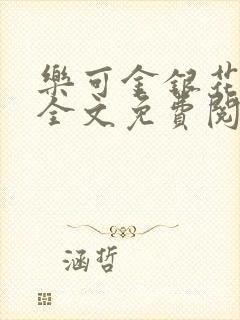 樂可金銀花
全文免費閱
涵哲